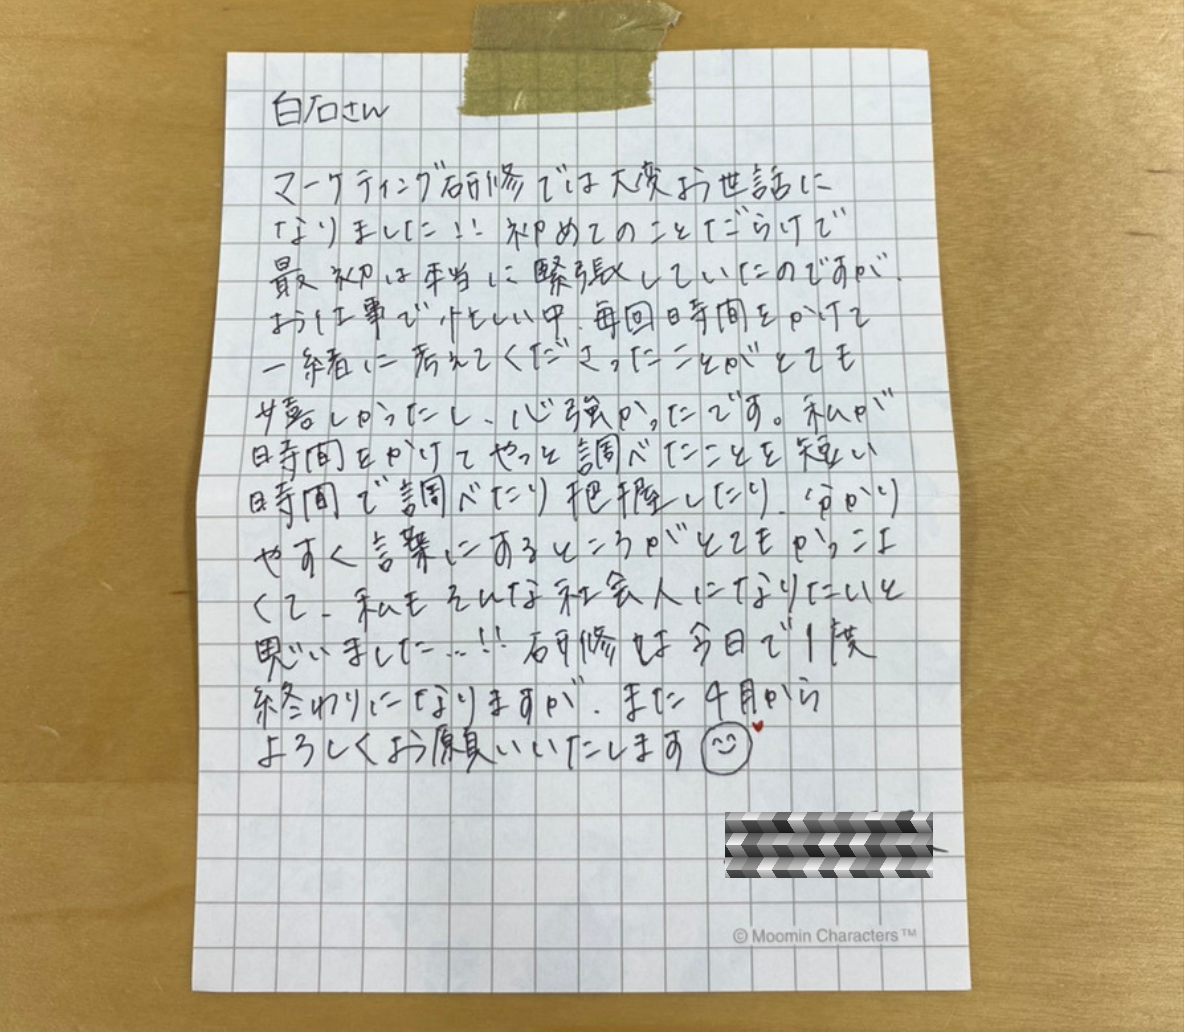 白石さん
マーケティング研修では大変お世話に
なりました!! 初めてのことだらけで
最初は本当に緊張していたのですが、
お仕事で忙しい中、毎回時間をかけて
一緒に考えてくださったことがとても
嬉しかったし、心強かったです。私が
時間をかけてやっと調べたことを短い
時間で調べたり把握したり、分かり
やすく言葉にするところがとてもかっこよ
くて、私もそんな社会人になりたいと
思いました…!! 研修は今日で1度
終わりになりますが、また4月から
よろしくお願いいたします
© Moomin Characters™